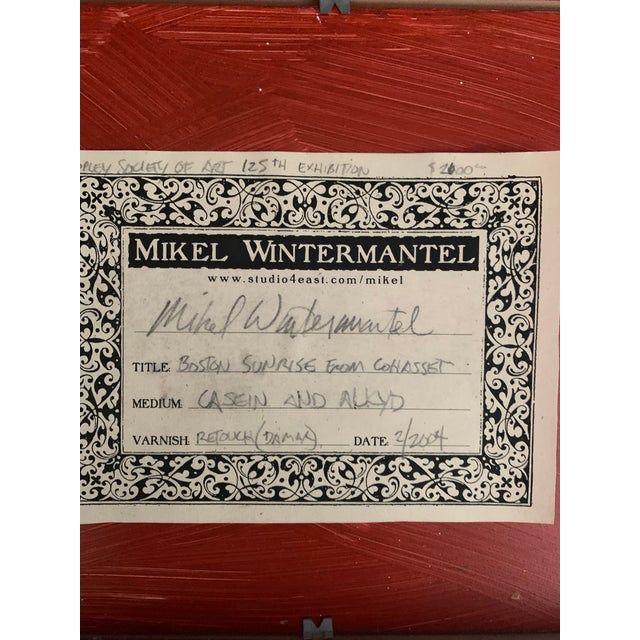 PLEY SOCIETY OF ART 125TH EXHIBITION
MIKEL WINTERMANTEL
www.studio4east.com/mikel
Mikel Wintermantel
TITLE: BOSTON SUNRISE FROM COHASSET
MEDIUM: CASEIN AND ALKYD
VARNISH: RETOUCH (DAMAR) DATE: 2/2004